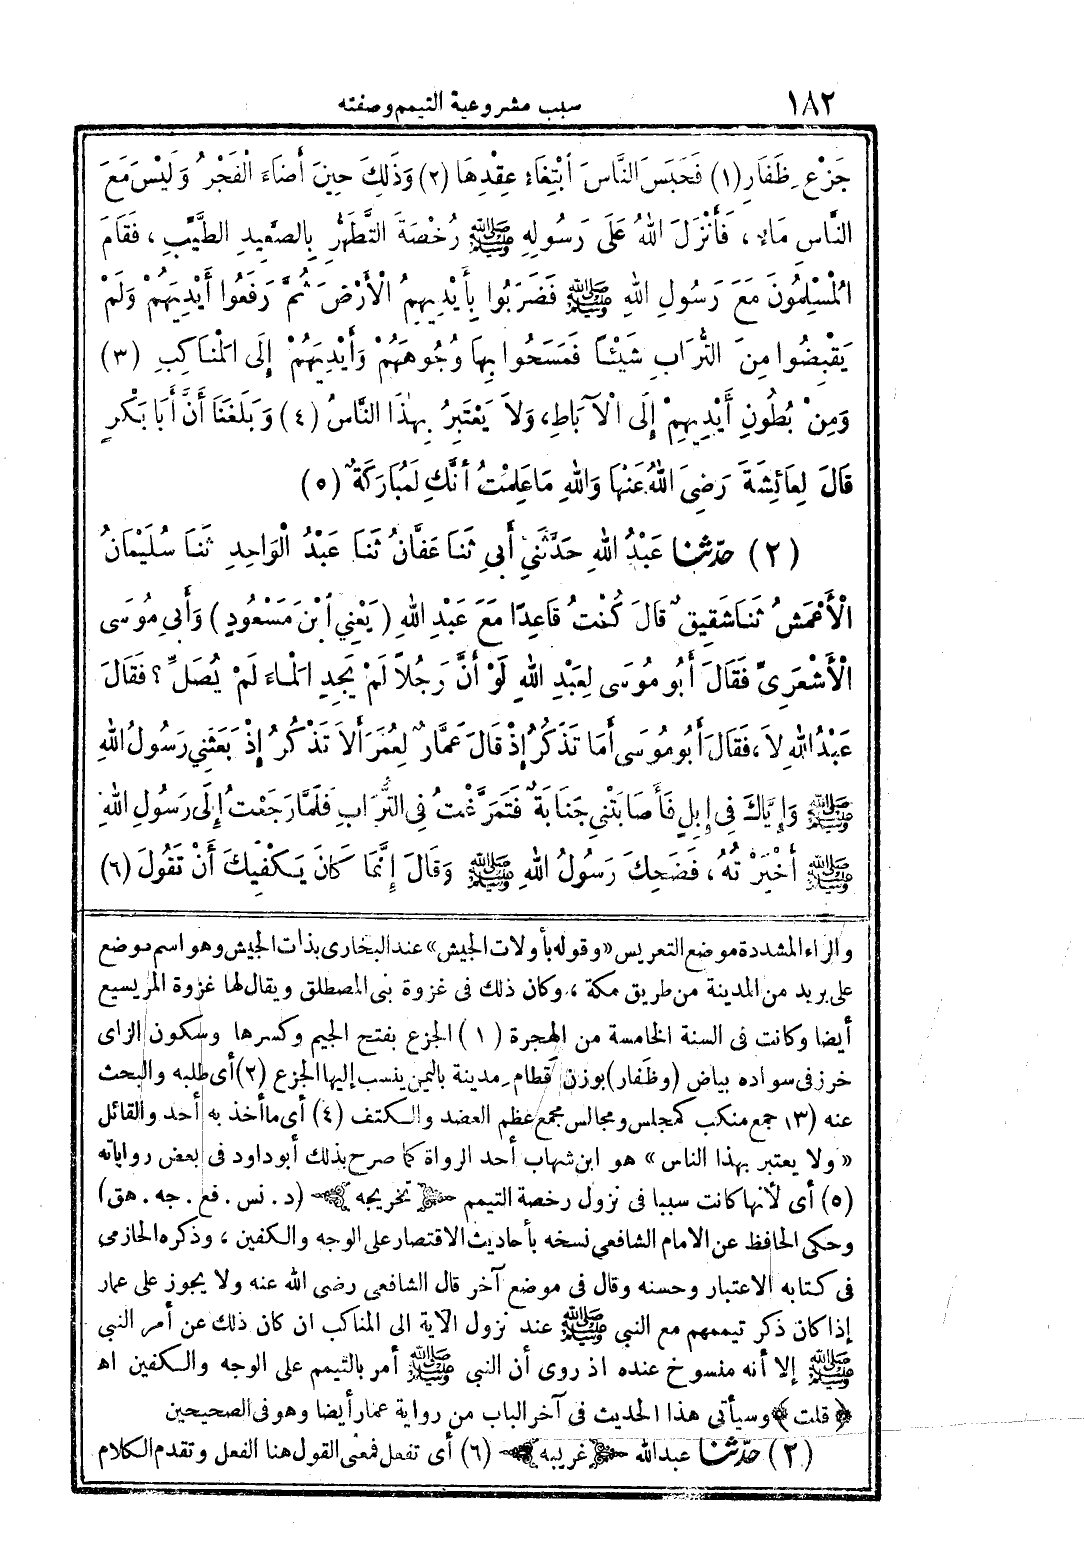 ١٨٢ سبب مشروعية التيمم وصفته
جَزْعِ ظَفَارِ (١) فَحَبَسَ النَّاسَ ابْتِغَاءُ عِقْدِهَا (٢) وَذَلِكَ حِينَ أَضَاءَ الْفَجْرُ وَلَيْسَ مَعَ
النَّاسِ مَاءٌ، فَأَنْزَلَ اللهُ عَلَى رَسُولِهِ ﷺ رُخْصَةَ التَّطَهُّرِ بِالصَّعِيدِ الطَّيِّبِ، فَقَامَ
الْمُسْلِمُونَ مَعَ رَسُولِ اللهِ ﷺ فَضَرَبُوا بِأَيْدِيهِمُ الْأَرْضَ ثُمَّ رَفَعُوا أَيْدِيَهُمْ وَلَمْ
يَقْبِضُوا مِنَ التُّرَابِ شَيْئًا فَمَسَحُوا بِهَا وُجُوهَهُمْ وَأَيْدِيَهُمْ إِلَى الْمَنَاكِبِ (٣)
وَمِنْ بُطُونِ أَيْدِيهِمْ إِلَى الْآبَاطِ، وَلَا يَعْتَبِرُ بِهَذَا النَّاسُ (٤) وَبَلَغَنَا أَنَّ أَبَا بَكْرٍ
قَالَ لِعَائِشَةَ رَضِيَ اللهُ عَنْهَا وَاللهِ مَا عَلِمْتُ أَنَّكِ لَمُبَارَكَةٌ (٥)
(٢) حدّثنا عَبْدُ اللهِ حَدَّثَنِي أَبِي ثَنَا عَفَّانُ ثَنَا عَبْدُ الْوَاحِدِ ثَنَا سُلَيْمَانُ
الْأَعْمَشُ ثَنَا شَقِيقٌ قَالَ كُنْتُ قَاعِدًا مَعَ عَبْدِ اللهِ (يَعْنِي ابْنَ مَسْعُودٍ) وَأَبِي مُوسَى
الْأَشْعَرِيِّ فَقَالَ أَبُو مُوسَى لِعَبْدِ اللهِ لَوْ أَنَّ رَجُلًا لَمْ يَجِدِ الْمَاءَ لَمْ يُصَلِّ؟ فَقَالَ
عَبْدُ اللهِ لَا، فَقَالَ أَبُو مُوسَى أَمَا تَذْكُرُ إِذْ قَالَ عَمَّارٌ لِعُمَرَ أَلَا تَذْكُرُ إِذْ بَعَثَنِي رَسُولُ اللهِ
ﷺ وَإِيَّاكَ فِي إِبِلٍ فَأَصَابَتْنِي جَنَابَةٌ فَتَمَرَّغْتُ فِي التُّرَابِ فَلَمَّا رَجَعْتُ إِلَى رَسُولِ اللهِ
ﷺ أَخْبَرْتُهُ، فَضَحِكَ رَسُولُ اللهِ ﷺ وَقَالَ إِنَّمَا كَانَ يَكْفِيكَ أَنْ تَقُولَ (٦)
والراء المشددة موضع التعريس «وقوله بأولات الجيش» عند البخارى بذات الجيش وهو اسم موضع
على بريد من المدينة من طريق مكة، وكان ذلك فى غزوة بنى المصطلق ويقال لها غزوة المريسيع
أيضا وكانت فى السنة الخامسة من الهجرة (١) الجزع بفتح الجيم وكسرها وسكون الزاى
خرز فى سواده بياض (وظفار) بوزن قطام مدينة باليمن ينسب إليها الجزع (٢) أى طلبه والبحث
عنه (٣) جمع منكب كمجلس ومجالس مجمع عظم العضد والكتف (٤) أى ما أخذ به أحد والقائل
«ولا يعتبر بهذا الناس» هو ابن شهاب أحد الرواة كما صرح بذلك أبو داود فى بعض رواياته
(٥) أى لأنها كانت سببا فى نزول رخصة التيمم ﴿تخريجه﴾ (د. نس. فع. جه. هق)
وحكى الحافظ عن الامام الشافعى نسخه بأحاديث الاقتصار على الوجه والكفين، وذكره الحازمى
فى كتابه الاعتبار وحسنه وقال فى موضع آخر قال الشافعى رضى الله عنه ولا يجوز على عمار
إذا كان ذكر تيممهم مع النبى ﷺ عند نزول الآية الى المناكب ان كان ذلك عن أمر النبى
ﷺ إلا أنه منسوخ عنده اذ روى أن النبى ﷺ أمر بالتيمم على الوجه والكفين اه
﴿قلت﴾ وسيأتى هذا الحديث فى آخر الباب من رواية عمار أيضا وهو فى الصحيحين
(٢) حدّثنا عبد الله ﴿غريبه﴾ (٦) أى تفعل فمعنى القول هنا الفعل وتقدم الكلام